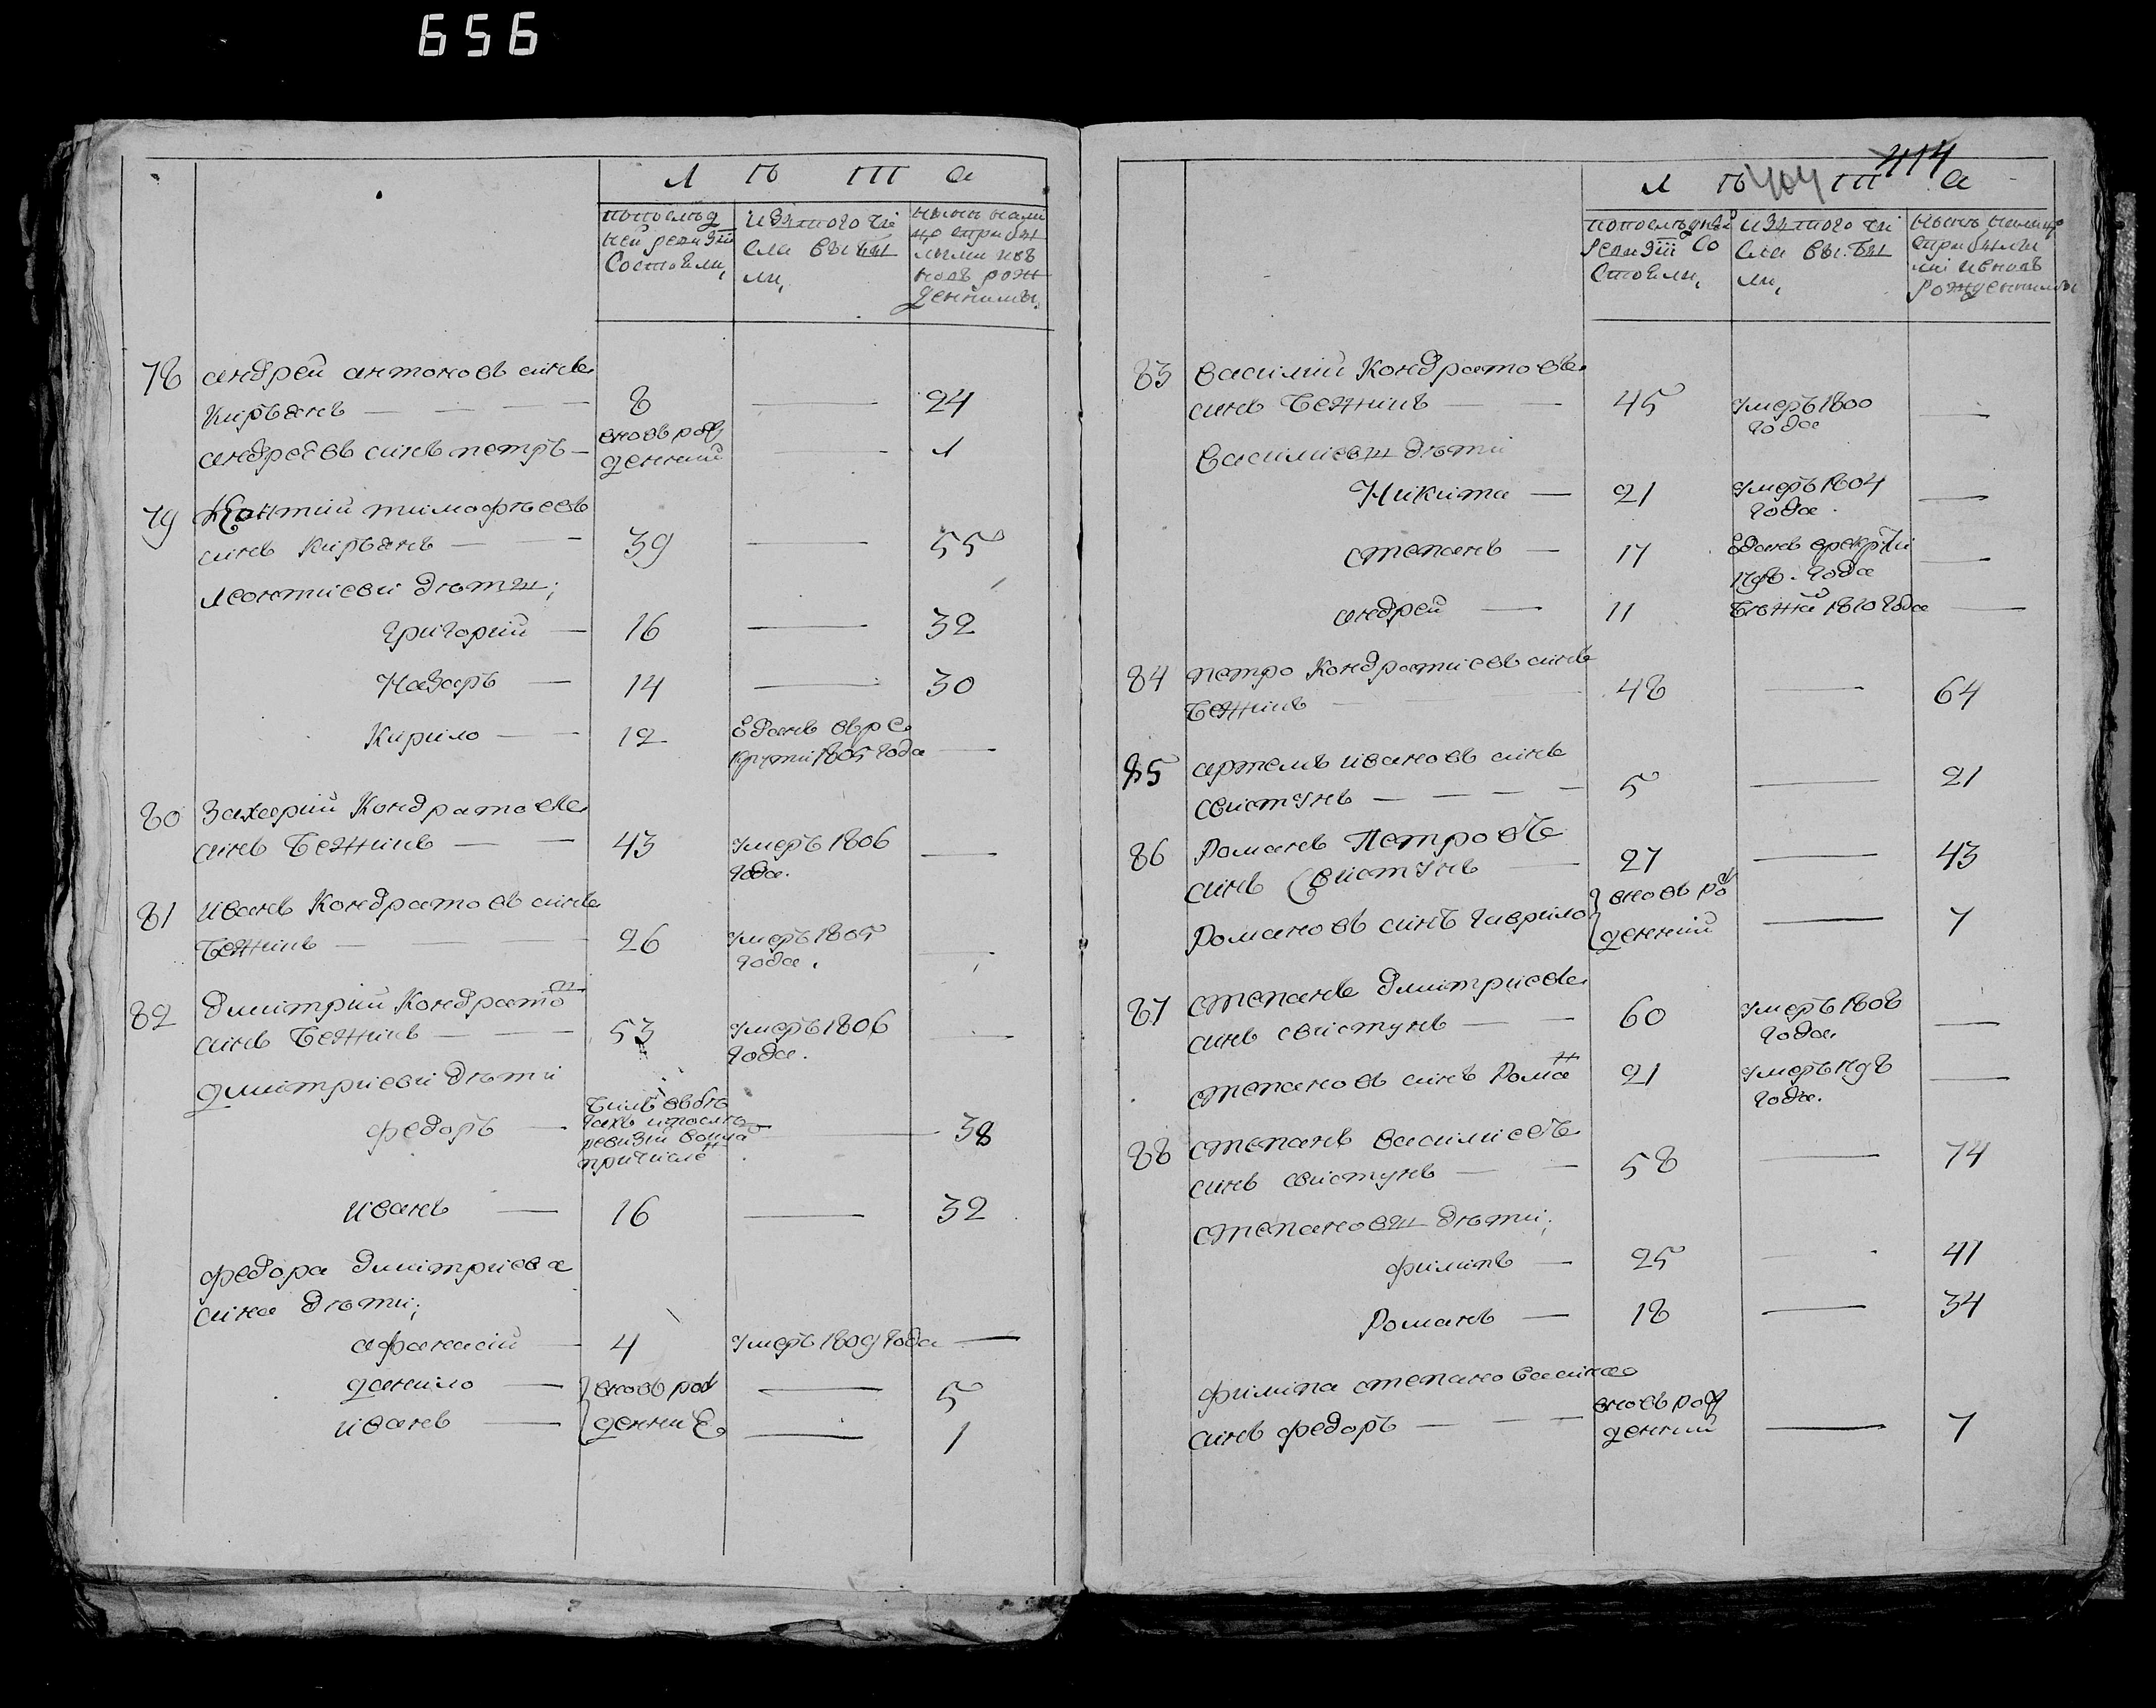 656
Л Ѣ Т А
попослѣд
ней ревизіи
Состояли,
изтого чи
сла выбы
ли,
нынѣ нали
цо стрибы
лыми ивъ
новь рож
денними.
78 андрей антоновъ синъ
Кирьянъ — — — 8 — 24
андреевъ синъ петръ — вновь рож
денний — 1
79 Леонтий тимофѣевъ
синъ Кирьянъ — — 39 — 55
Леонтиеви дѣты;
григорий — 16 — 32
Назаръ — 14 — 30
Кирило — — 12 Зданъ врѣ
крути 1805 года —
80 Захарий Кондратовъ
синъ Бежинъ — — 43 умеръ 1806
года. —
81 Иванъ Кондратовъ синъ
Бежинъ — — — 26 умеръ 1805
года. —
82 Дмитрий Кондрато
синъ Бежинъ — — 53 умеръ 1806
года. —
дмитриеви дѣти
федоръ — билъ вбѣ
гахъ ипослѣ
ревизіи
причисле — 38
Иванъ — 16 — 32
федора дмитриева
сина дѣти;
афанасий — 4 умеръ 1809 года —
данило — вновь рож — 5
иванъ — денние — 1
414
404
Л Ѣ Т А
попослѣдней
ревизіи Со
стояли,
изтого чи
сла выбы
ли,
нынѣ налицо
стрибылы
ми ивновь
рожденними
83 Василий Кондратовъ
синъ Бежинъ — — 45 умеръ 1800
года —
Василиевы дѣти
Никита — 21 умеръ 1804
года. —
степанъ — 17 Зданъ врекрути
года —
андрей — 11 бѣжа 1810 года —
84 петро Кондратиевъ синъ
Бежинъ — — 48 — 64
85 артемъ ивановъ синъ
свистунъ — — — — 5 — 21
86 Романъ Петровъ
синъ Свистунъ — 27 — 43
Романовъ синъ гаврило вновь ро
денний — 7
87 степанъ дмитриевъ
синъ свистунъ — — 60 умеръ 1808
года. —
степановъ синъ Рома 21 умеръ
года. —
88 степанъ василиевъ
синъ свистунъ — — 58 — 74
степановы дѣти;
филипъ — 25 — 41
Романъ — 18 — 34
филипа степанова сина
синъ федоръ — — — вновь рож
денний — 7